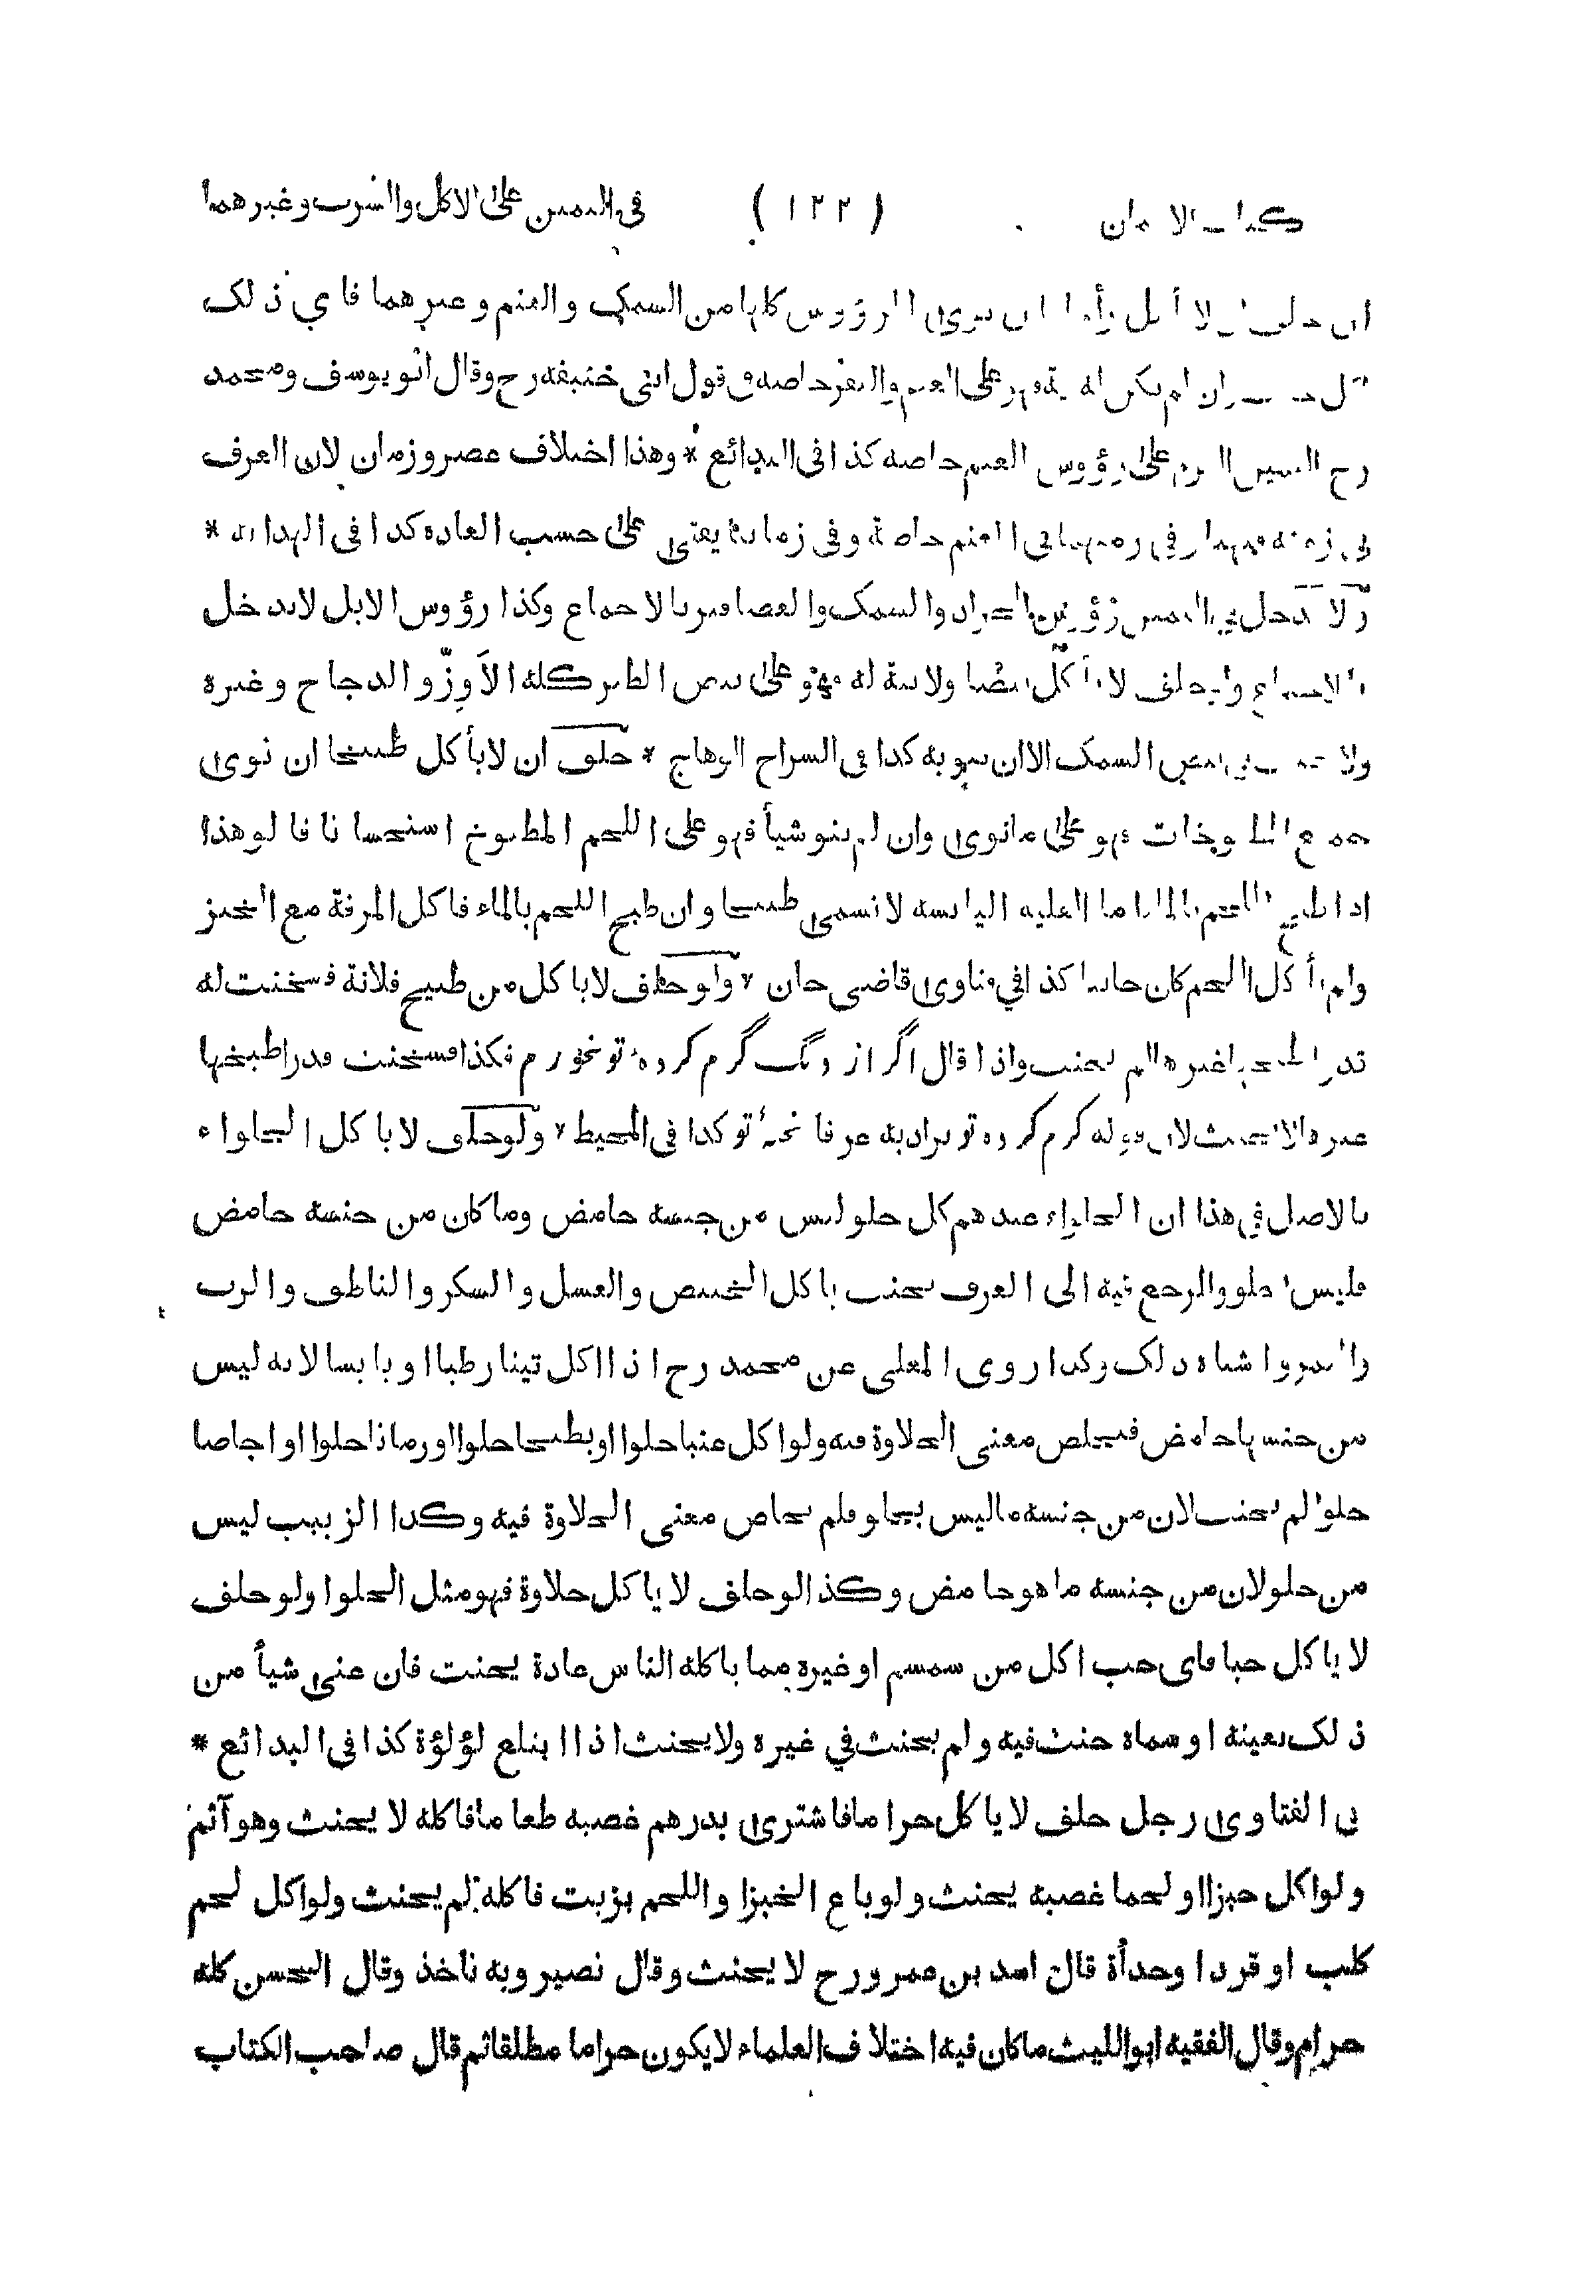 كتاب الايمان (١٢٢) في اليمين على الاكل والشرب وغيرهما
ان حلف لا يأكل رأسا ان نوى الرؤوس كلها من السمك والغنم وغيرهما فاي ذلك
اكل حنث وان لم يكن له نية فهو على الغنم والبقر خاصة في قول ابي حنيفة رح وقال ابو يوسف ومحمد
رح اليمين اليوم على رؤوس الغنم خاصة كذا في البدائع * وهذا اختلاف عصر وزمان لان العرف
في زمنه فيهما وفي زمنهما في الغنم خاصة وفي زماننا يفتى على حسب العادة كذا في الهداية *
ولا تدخل في اليمين رؤوس الجراد والسمك والعصافير بالاجماع وكذا رؤوس الابل لا يدخل
بالاجماع ولو حلف لا يأكل بيضا ولا نية له فهو على بيض الطير كله الاوز والدجاج وغيره
ولا يحنث في بيض السمك الا ان ينويه كذا في السراج الوهاج * حلف ان لا يأكل طبيخا ان نوى
جميع المطبوخات فهو على ما نوى وان لم ينو شيأ فهو على اللحم المطبوخ استحسانا قالوا هذا
اذا طبخ اللحم بالماء اما القلية اليابسة لا تسمى طبيخا وان طبخ اللحم بالماء فاكل المرقة مع الخبز
ولم يأكل اللحم كان حانثا كذا في فتاوى قاضي خان * ولو حلف لا ياكل من طبيخ فلانة فسخنت له
قدرا طبخها غيرها لم يحنث واذا قال اگر از ديگ گرم كرده تو نخورم فكذا فسخنت قدرا طبخها
غيرها لا يحنث لان قوله گرم كرده تو يراد به عرفا پختهٔ تو كذا في المحيط * ولو حلف لا ياكل الحلواء
فالاصل في هذا ان الحلواء عندهم كل حلو ليس من جنسه حامض وما كان من جنسه حامض
فليس بحلو والمرجع فيه الى العرف يحنث باكل الخبيص والعسل والسكر والناطف والرب
والتمر واشباه ذلك وكذا روى المعلى عن محمد رح اذا اكل تينا رطبا او يابسا لانه ليس
من جنسها حامض فيخلص معنى الحلاوة فيه ولو اكل عنبا حلوا او بطيخا حلوا او رمانا حلوا او اجاصا
حلوا لم يحنث لان من جنسه ما ليس بحلو فلم يخلص معنى الحلاوة فيه وكذا الزبيب ليس
من حلو لان من جنسه ما هو حامض وكذا لو حلف لا ياكل حلاوة فهو مثل الحلوا ولو حلف
لا ياكل حبا فاى حب اكل من سمسم او غيره مما ياكله الناس عادة يحنث فان عنى شيأ من
ذلك بعينه او سماه حنث فيه ولم يحنث في غيره ولا يحنث اذا ابتلع لؤلؤة كذا في البدائع *
في الفتاوى رجل حلف لا ياكل حراما فاشترى بدرهم غصبه طعاما فاكله لا يحنث وهو آثم
ولو اكل خبزا او لحما غصبه يحنث ولو باع الخبز او اللحم بزيت فاكله لم يحنث ولو اكل لحم
كلب او قرد او حدأة قال اسد بن عمرو رح لا يحنث وقال نصير وبه ناخذ وقال الحسن كله
حرام وقال الفقيه ابو الليث ما كان فيه اختلاف العلماء لا يكون حراما مطلقا ثم قال صاحب الكتاب